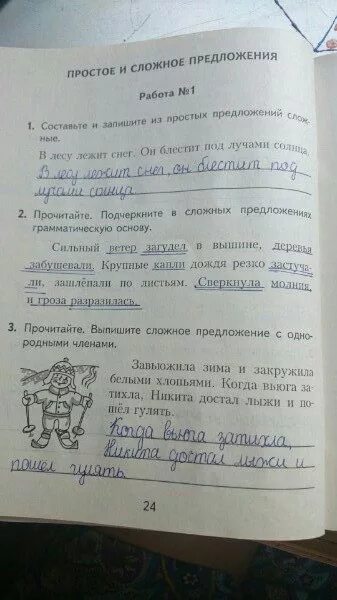 ПРОСТОЕ И СЛОЖНОЕ ПРЕДЛОЖЕНИЯ
Работа №1
1. Составьте и запишите из простых предложений слож-
ные.
В лесу лежит снег. Он блестит под лучами солнца.
В лесу лежит снег, он блестит под
лучами солнца
2. Прочитайте. Подчеркните в сложных предложениях
грамматическую основу.
Сильный ветер загудел в вышине, деревья
забушевали. Крупные капли дождя резко застуча-
ли, зашлёпали по листьям. Сверкнула молния,
и гроза разразилась.
3. Прочитайте. Выпишите сложное предложение с одно-
родными членами.
Завьюжила зима и закружила
белыми хлопьями. Когда вьюга за-
тихла, Никита достал лыжи и по-
шёл гулять.
Когда вьюга затихла,
Никита достал лыжи и
пошел гулять
24